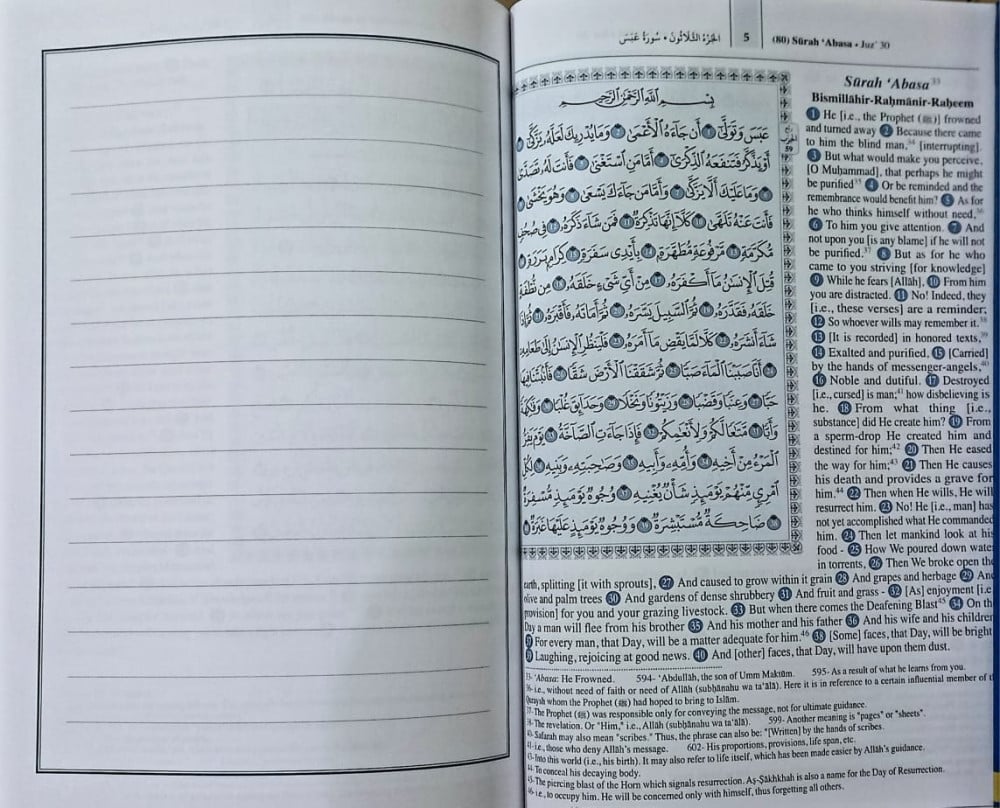 الجزء الثلاثون • سورة عبس
5
(80) Sūrah ‘Abasa • Juz’ 30
بِسْمِ اللَّهِ الرَّحْمَٰنِ الرَّحِيمِ
عَبَسَ وَتَوَلَّىٰ ١ أَن جَاءَهُ الْأَعْمَىٰ ٢ وَمَا يُدْرِيكَ لَعَلَّهُ يَزَّكَّىٰ ٣
أَوْ يَذَّكَّرُ فَتَنفَعَهُ الذِّكْرَىٰ ٤ أَمَّا مَنِ اسْتَغْنَىٰ ٥ فَأَنتَ لَهُ تَصَدَّىٰ
٦ وَمَا عَلَيْكَ أَلَّا يَزَّكَّىٰ ٧ وَأَمَّا مَن جَاءَكَ يَسْعَىٰ ٨ وَهُوَ يَخْشَىٰ ٩
فَأَنتَ عَنْهُ تَلَهَّىٰ ١٠ كَلَّا إِنَّهَا تَذْكِرَةٌ ١١ فَمَن شَاءَ ذَكَرَهُ ١٢ فِي صُحُفٍ
مُّكَرَّمَةٍ ١٣ مَّرْفُوعَةٍ مُّطَهَّرَةٍ ١٤ بِأَيْدِي سَفَرَةٍ ١٥ كِرَامٍ بَرَرَةٍ ١٦
قُتِلَ الْإِنسَانُ مَا أَكْفَرَهُ ١٧ مِنْ أَيِّ شَيْءٍ خَلَقَهُ ١٨ مِن نُّطْفَةٍ
خَلَقَهُ فَقَدَّرَهُ ١٩ ثُمَّ السَّبِيلَ يَسَّرَهُ ٢٠ ثُمَّ أَمَاتَهُ فَأَقْبَرَهُ ٢١ ثُمَّ إِذَا
شَاءَ أَنشَرَهُ ٢٢ كَلَّا لَمَّا يَقْضِ مَا أَمَرَهُ ٢٣ فَلْيَنظُرِ الْإِنسَانُ إِلَىٰ طَعَامِهِ
٢٤ أَنَّا صَبَبْنَا الْمَاءَ صَبًّا ٢٥ ثُمَّ شَقَقْنَا الْأَرْضَ شَقًّا ٢٦ فَأَنبَتْنَا فِيهَا
حَبًّا ٢٧ وَعِنَبًا وَقَضْبًا ٢٨ وَزَيْتُونًا وَنَخْلًا ٢٩ وَحَدَائِقَ غُلْبًا ٣٠ وَفَاكِهَةً
وَأَبًّا ٣١ مَّتَاعًا لَّكُمْ وَلِأَنْعَامِكُمْ ٣٢ فَإِذَا جَاءَتِ الصَّاخَّةُ ٣٣ يَوْمَ يَفِرُّ
الْمَرْءُ مِنْ أَخِيهِ ٣٤ وَأُمِّهِ وَأَبِيهِ ٣٥ وَصَاحِبَتِهِ وَبَنِيهِ ٣٦ لِكُلِّ
امْرِئٍ مِّنْهُمْ يَوْمَئِذٍ شَأْنٌ يُغْنِيهِ ٣٧ وُجُوهٌ يَوْمَئِذٍ مُّسْفِرَةٌ
٣٨ ضَاحِكَةٌ مُّسْتَبْشِرَةٌ ٣٩ وَوُجُوهٌ يَوْمَئِذٍ عَلَيْهَا غَبَرَةٌ ٤٠
ربع الحزب 59
Sūrah ‘Abasa
Bismillāhir-Raḥmānir-Raḥeem
1 He [i.e., the Prophet (ﷺ)] frowned
and turned away 2 Because there came
to him the blind man, [interrupting].
3 But what would make you perceive,
[O Muḥammad], that perhaps he might
be purified 4 Or be reminded and the
remembrance would benefit him? 5 As for
he who thinks himself without need,
6 To him you give attention. 7 And
not upon you [is any blame] if he will not
be purified.37 8 But as for he who
came to you striving [for knowledge]
9 While he fears [Allāh], 10 From him
you are distracted. 11 No! Indeed, they
[i.e., these verses] are a reminder;
12 So whoever wills may remember it.
13 [It is recorded] in honored texts,
14 Exalted and purified, 15 [Carried]
by the hands of messenger-angels,
16 Noble and dutiful. 17 Destroyed
[i.e., cursed] is man;41 how disbelieving is
he. 18 From what thing [i.e.,
substance] did He create him? 19 From
a sperm-drop He created him and
destined for him;42 20 Then He eased
the way for him;43 21 Then He causes
his death and provides a grave for
him.44 22 Then when He wills, He will
resurrect him. 23 No! He [i.e., man] has
not yet accomplished what He commanded
him. 24 Then let mankind look at his
food - 25 How We poured down water
in torrents, 26 Then We broke open the
earth, splitting [it with sprouts], 27 And caused to grow within it grain 28 And grapes and herbage 29 And
olive and palm trees 30 And gardens of dense shrubbery 31 And fruit and grass - 32 [As] enjoyment [i.e.
provision] for you and your grazing livestock. 33 But when there comes the Deafening Blast45 34 On the
Day a man will flee from his brother 35 And his mother and his father 36 And his wife and his children
37 For every man, that Day, will be a matter adequate for him.46 38 [Some] faces, that Day, will be bright
39 Laughing, rejoicing at good news. 40 And [other] faces, that Day, will have upon them dust.
‘Abasa: He Frowned. 594- ‘Abdullāh, the son of Umm Maktūm. 595- As a result of what he learns from you.
i.e., without need of faith or need of Allāh (subḥānahu wa ta‘ālā). Here it is in reference to a certain influential member of the
Quraysh whom the Prophet (ﷺ) had hoped to bring to Islām.
37- The Prophet (ﷺ) was responsible only for conveying the message, not for ultimate guidance.
38- The revelation. Or "Him," i.e., Allāh (subḥānahu wa ta‘ālā). 599- Another meaning is "pages" or "sheets".
40- Safarah may also mean "scribes." Thus, the phrase can also be: "[Written] by the hands of scribes.
41- i.e., those who deny Allāh's message. 602- His proportions, provisions, life span, etc.
43- Into this world (i.e., his birth). It may also refer to life itself, which has been made easier by Allāh's guidance.
44- To conceal his decaying body.
45- The piercing blast of the Horn which signals resurrection. Aṣ-Ṣākhkhah is also a name for the Day of Resurrection.
46- i.e., to occupy him. He will be concerned only with himself, thus forgetting all others.